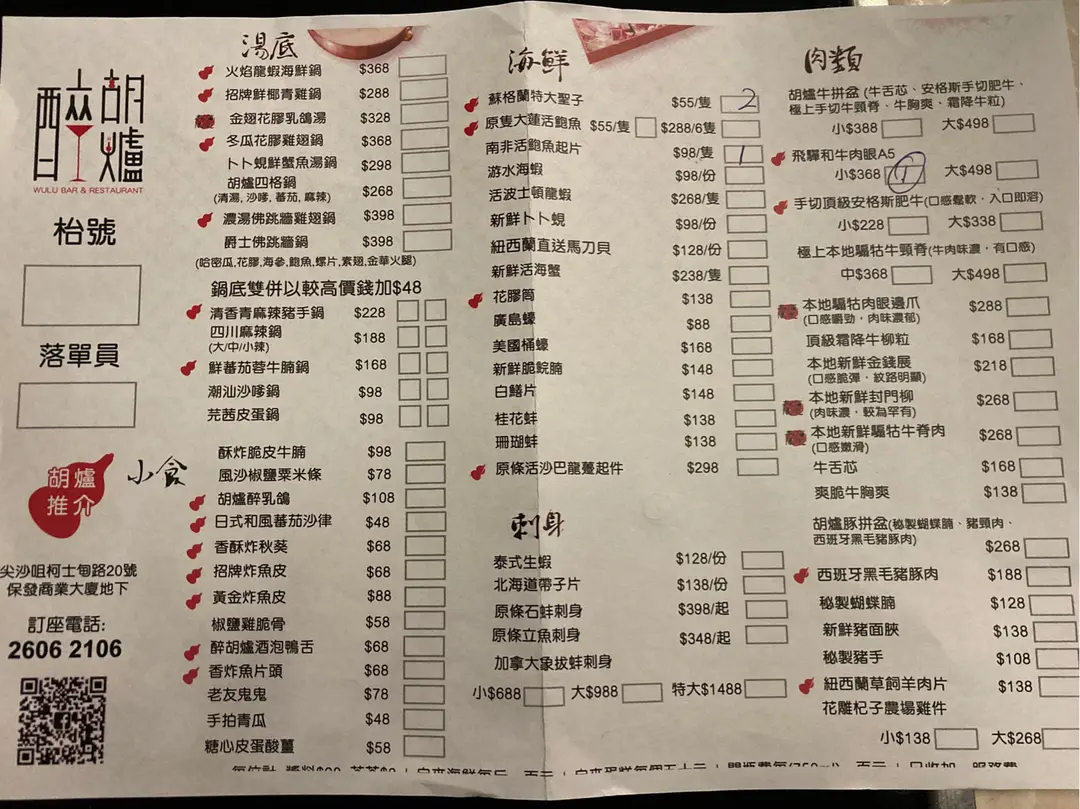 醉胡爐
WULU BAR & RESTAURANT
枱號
落單員
胡爐
推介
尖沙咀柯士甸路20號
保發商業大廈地下
訂座電話:
2606 2106
湯底
火焰龍蝦海鮮鍋 $368
招牌鮮椰青雞鍋 $288
金翅花膠乳鴿湯 $328
冬瓜花膠雞翅鍋 $368
卜卜蜆鮮蟹魚湯鍋 $298
胡爐四格鍋 $268
(清湯, 沙嗲, 蕃茄, 麻辣)
濃湯佛跳牆雞翅鍋 $398
爵士佛跳牆鍋 $398
(哈密瓜,花膠,海參,鮑魚,螺片,素翅,金華火腿)
鍋底雙併以較高價錢加$48
清香青麻辣豬手鍋 $228
四川麻辣鍋 $188
(大/中/小辣)
鮮蕃茄蓉牛腩鍋 $168
潮汕沙嗲鍋 $98
芫茜皮蛋鍋 $98
小食
酥炸脆皮牛腩 $98
風沙椒鹽粟米條 $78
胡爐醉乳鴿 $108
日式和風蕃茄沙律 $48
香酥炸秋葵 $68
招牌炸魚皮 $68
黃金炸魚皮 $88
椒鹽雞脆骨 $58
醉胡爐酒泡鴨舌 $68
香炸魚片頭 $68
老友鬼鬼 $78
手拍青瓜 $48
糖心皮蛋酸薑 $58
海鮮
蘇格蘭特大聖子 $55/隻 2
原隻大蓮活鮑魚 $55/隻 $288/6隻
南非活鮑魚起片 $98/隻 1
游水海蝦 $98/份
活波士頓龍蝦 $268/隻
新鮮卜卜蜆 $98/份
紐西蘭直送馬刀貝 $128/份
新鮮活海蟹 $238/隻
花膠筒 $138
廣島蠔 $88
美國桶蠔 $168
新鮮脆鯇腩 $148
白鱔片 $148
桂花蚌 $138
珊瑚蚌 $138
原條活沙巴龍躉起件 $298
刺身
泰式生蝦 $128/份
北海道帶子片 $138/份
原條石蚌刺身 $398/起
原條立魚刺身 $348/起
加拿大象拔蚌刺身
小$688 大$988 特大$1488
肉類
胡爐牛拼盆 (牛舌芯、安格斯手切肥牛、
極上手切牛頸脊、牛胸爽、霜降牛粒)
小$388 大$498
飛驒和牛肉眼A5
小$368 1 大$498
手切頂級安格斯肥牛(口感鬆軟，入口即溶)
小$228 大$338
極上本地騸牯牛頸脊(牛肉味濃，有口感)
中$368 大$498
本地騸牯肉眼邊爪 $288
(口感嚼勁，肉味濃郁)
頂級霜降牛柳粒 $168
本地新鮮金錢展 $218
(口感脆彈，紋路明顯)
本地新鮮封門柳 $268
(肉味濃，較為罕有)
本地新鮮騸牯牛脊肉 $268
(口感嫩滑)
牛舌芯 $168
爽脆牛胸爽 $138
胡爐豚拼盆(秘製蝴蝶腩、豬頸肉、
西班牙黑毛豬豚肉) $268
西班牙黑毛豬豚肉 $188
秘製蝴蝶腩 $128
新鮮豬面脥 $138
秘製豬手 $108
紐西蘭草飼羊肉片 $138
花雕杞子農場雞件
小$138 大$268